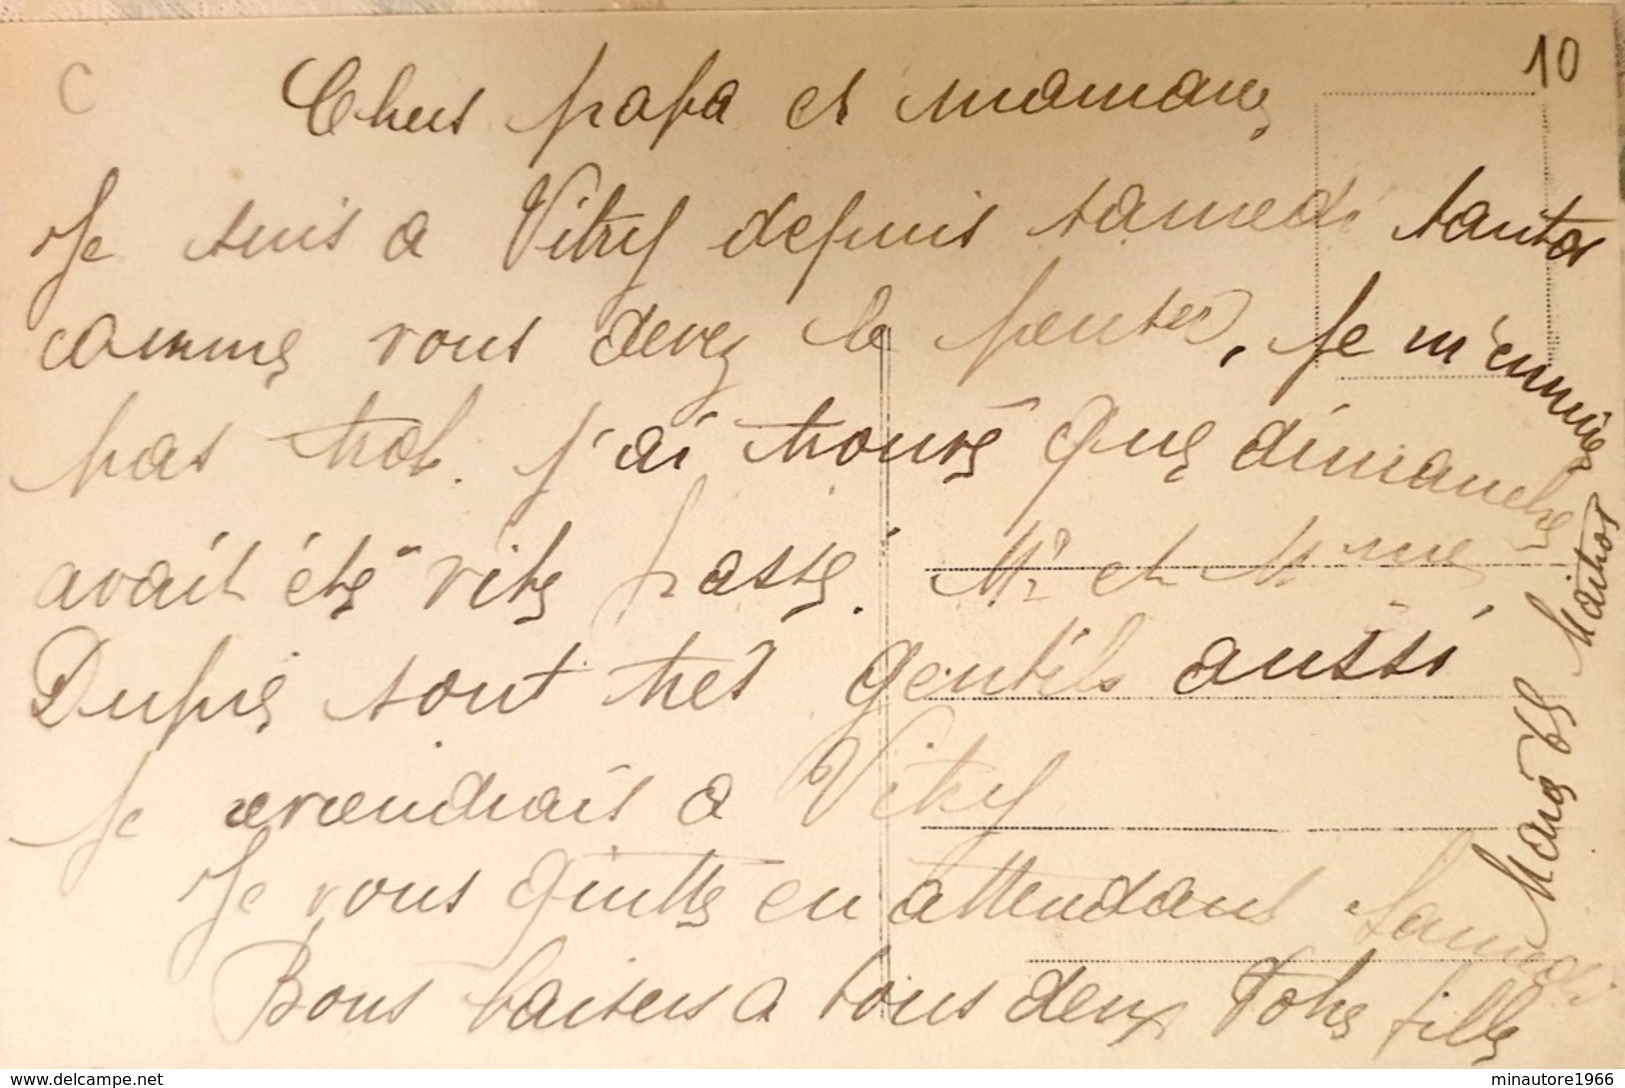 C
10
Chers papa et maman,
Je suis a Vitry depuis samedi tantot
comme vous devez le penser, je m'ennuie
pas trop. j'ai trouvé que dimanche
avait été vite passé. Mr et Mme
Dupré sont tres gentils aussi,
je reviendrais a Vitry
Je vous quitte en attendant samedi
Bons baisers a tous deux Votre fille
minautore1966